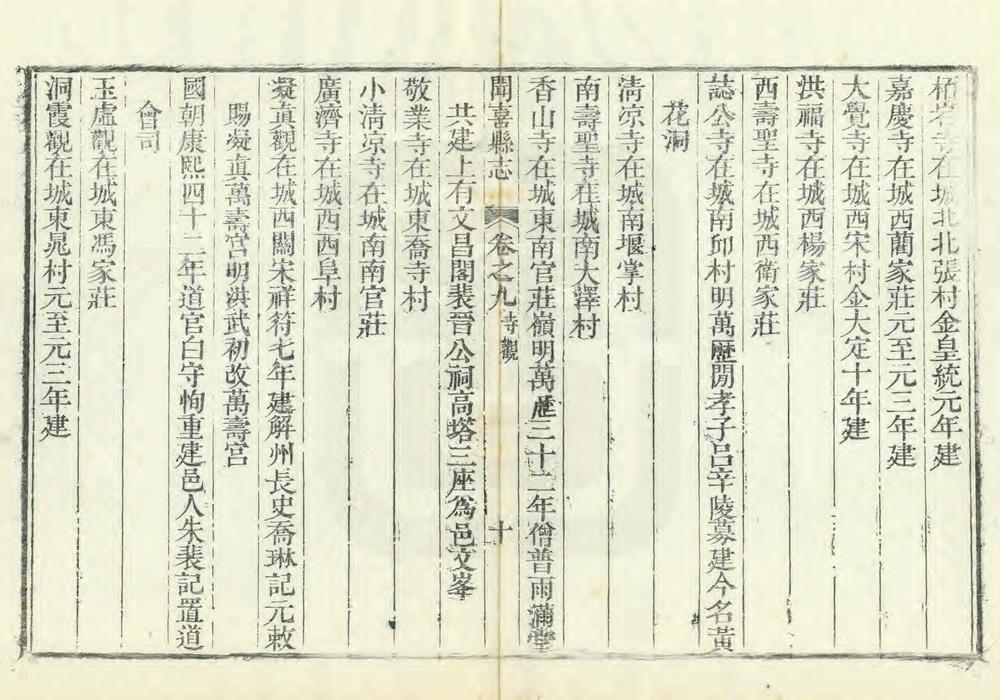 栢岩寺在城北北張村金皇統元年建
嘉慶寺在城西藺家莊元至元三年建
大覺寺在城西宋村金大定十年建
洪福寺在城西楊家莊
西壽聖寺在城西衛家莊
誌公寺在城南邱村明萬歷閒孝子呂辛陵募建今名黃
花洞
淸凉寺在城南堰掌村
南壽聖寺在城南大澤村
香山寺在城東南官莊嶺明萬歷三十二年僧普雨滿堂
聞喜縣志 卷之九 寺觀 十
共建上有文昌閣裴晉公祠高塔三座爲邑文峯
敬業寺在城東喬寺村
小淸凉寺在城南南官莊
廣濟寺在城西西阜村
凝眞觀在城西關宋祥符七年建解州長史喬琳記元敕
賜凝眞萬壽宮明洪武初改萬壽宮
國朝康熙四十二年道官白守恂重建邑人朱裴記置道
會司
玉虛觀在城東馮家莊
洞霞觀在城東晁村元至元三年建